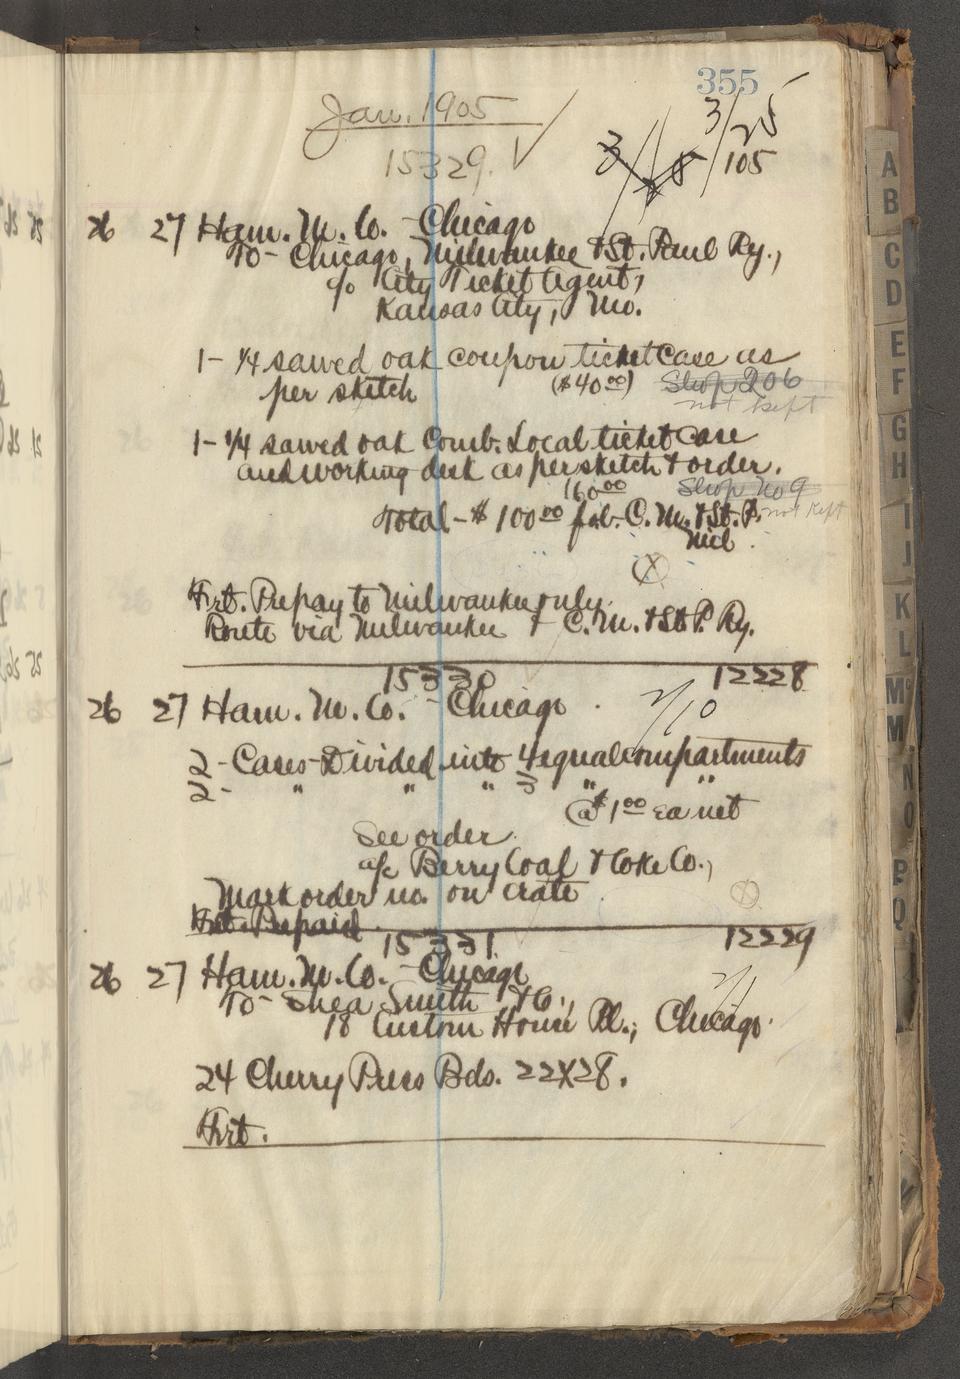 355
Jan. 1905
15329. 3/25
105
26 27 Ham. M. Co. - Chicago
To - Chicago, Milwaukee & St. Paul Ry.,
c/o City Ticket Agent,
Kansas City, Mo.
1 - 1/4 sawed oak coupon ticket case as
per sketch ($40.00) Shop 206
not kept
1 - 1/4 sawed oak Comb. Local ticket case
and working desk as per sketch & order.
160.00 Shop No 9
Total - $100.00 fob. C. M. & St. P. not kept
Frt. Prepay to Milwaukee only.
Route via Milwaukee & C. M. & St. P. Ry.
15330 12228
26 27 Ham. M. Co. - Chicago . 2/10
2 - Cases - Divided into 4 equal compartments
2 - " " " 3 " "
@ $1.00 ea net
See order.
a/c Berry Coal & Coke Co.,
Mark order no. on crate
Frt. Prepaid.
15331 12229
26 27 Ham. M. Co. - Chicago 2/1
To - Shea Smith & Co.,
18 Custom House Pl., Chicago.
24 Cherry Press Bds. 22X28.
Frt.
A
B
C
D
E
F
G
H
I
J
K
L
Mc
M
N
O
P
Q